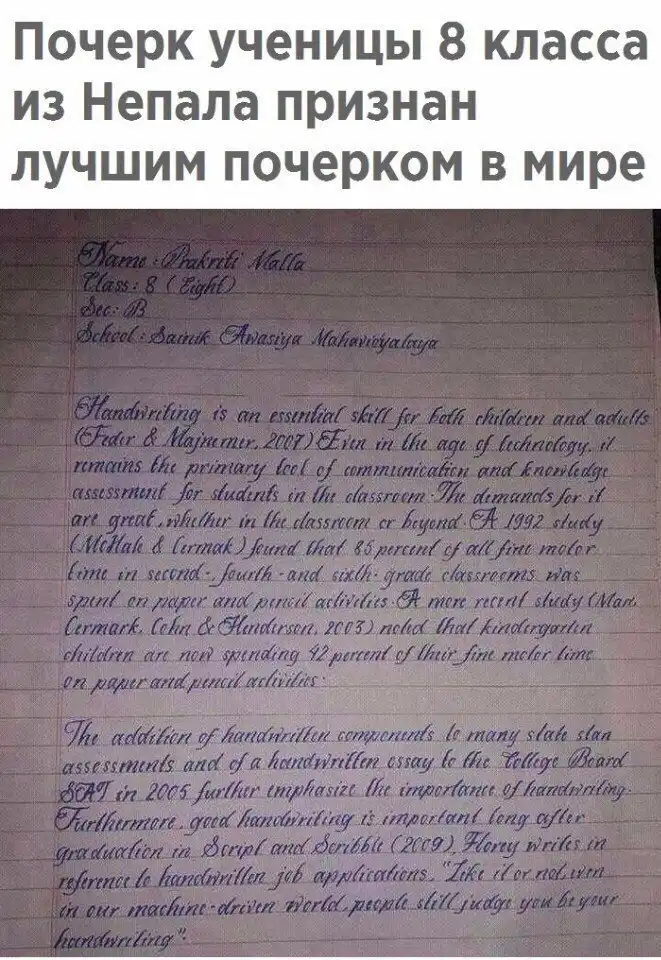 Почерк ученицы 8 класса
из Непала признан
лучшим почерком в мире
Name : Prakriti Malla
Class : 8 ( Eight )
Sec : B
School : Sainik Awasiya Mahavidyalaya
Handwriting is an essential skill for both children and adults
(Feder & Majnemer, 2007) Even in the age of technology, it
remains the primary tool of communication and knowledge
assessment for students in the classroom. The demands for it
are great, whether in the classroom or beyond. A 1992 study
(McHale & Cermak) found that 85 percent of all fine motor
time in second-, fourth- and sixth- grade classrooms was
spent on paper and pencil activities. A more recent study (Marr,
Cermark, Cohn & Henderson, 2003) noted that kindergarten
children are now spending 42 percent of their fine motor time
on paper and pencil activities.
The addition of handwritten components to many state stan
assessments and of a handwritten essay to the College Board
SAT in 2005 further emphasize the importance of handwriting.
Furthermore, good handwriting is important long after
graduation in Script and Scribble (2009), Florey writes in
reference to handwritten job applications, "Like it or not, even
in our machine-driven world, people still judge you by your
handwriting".